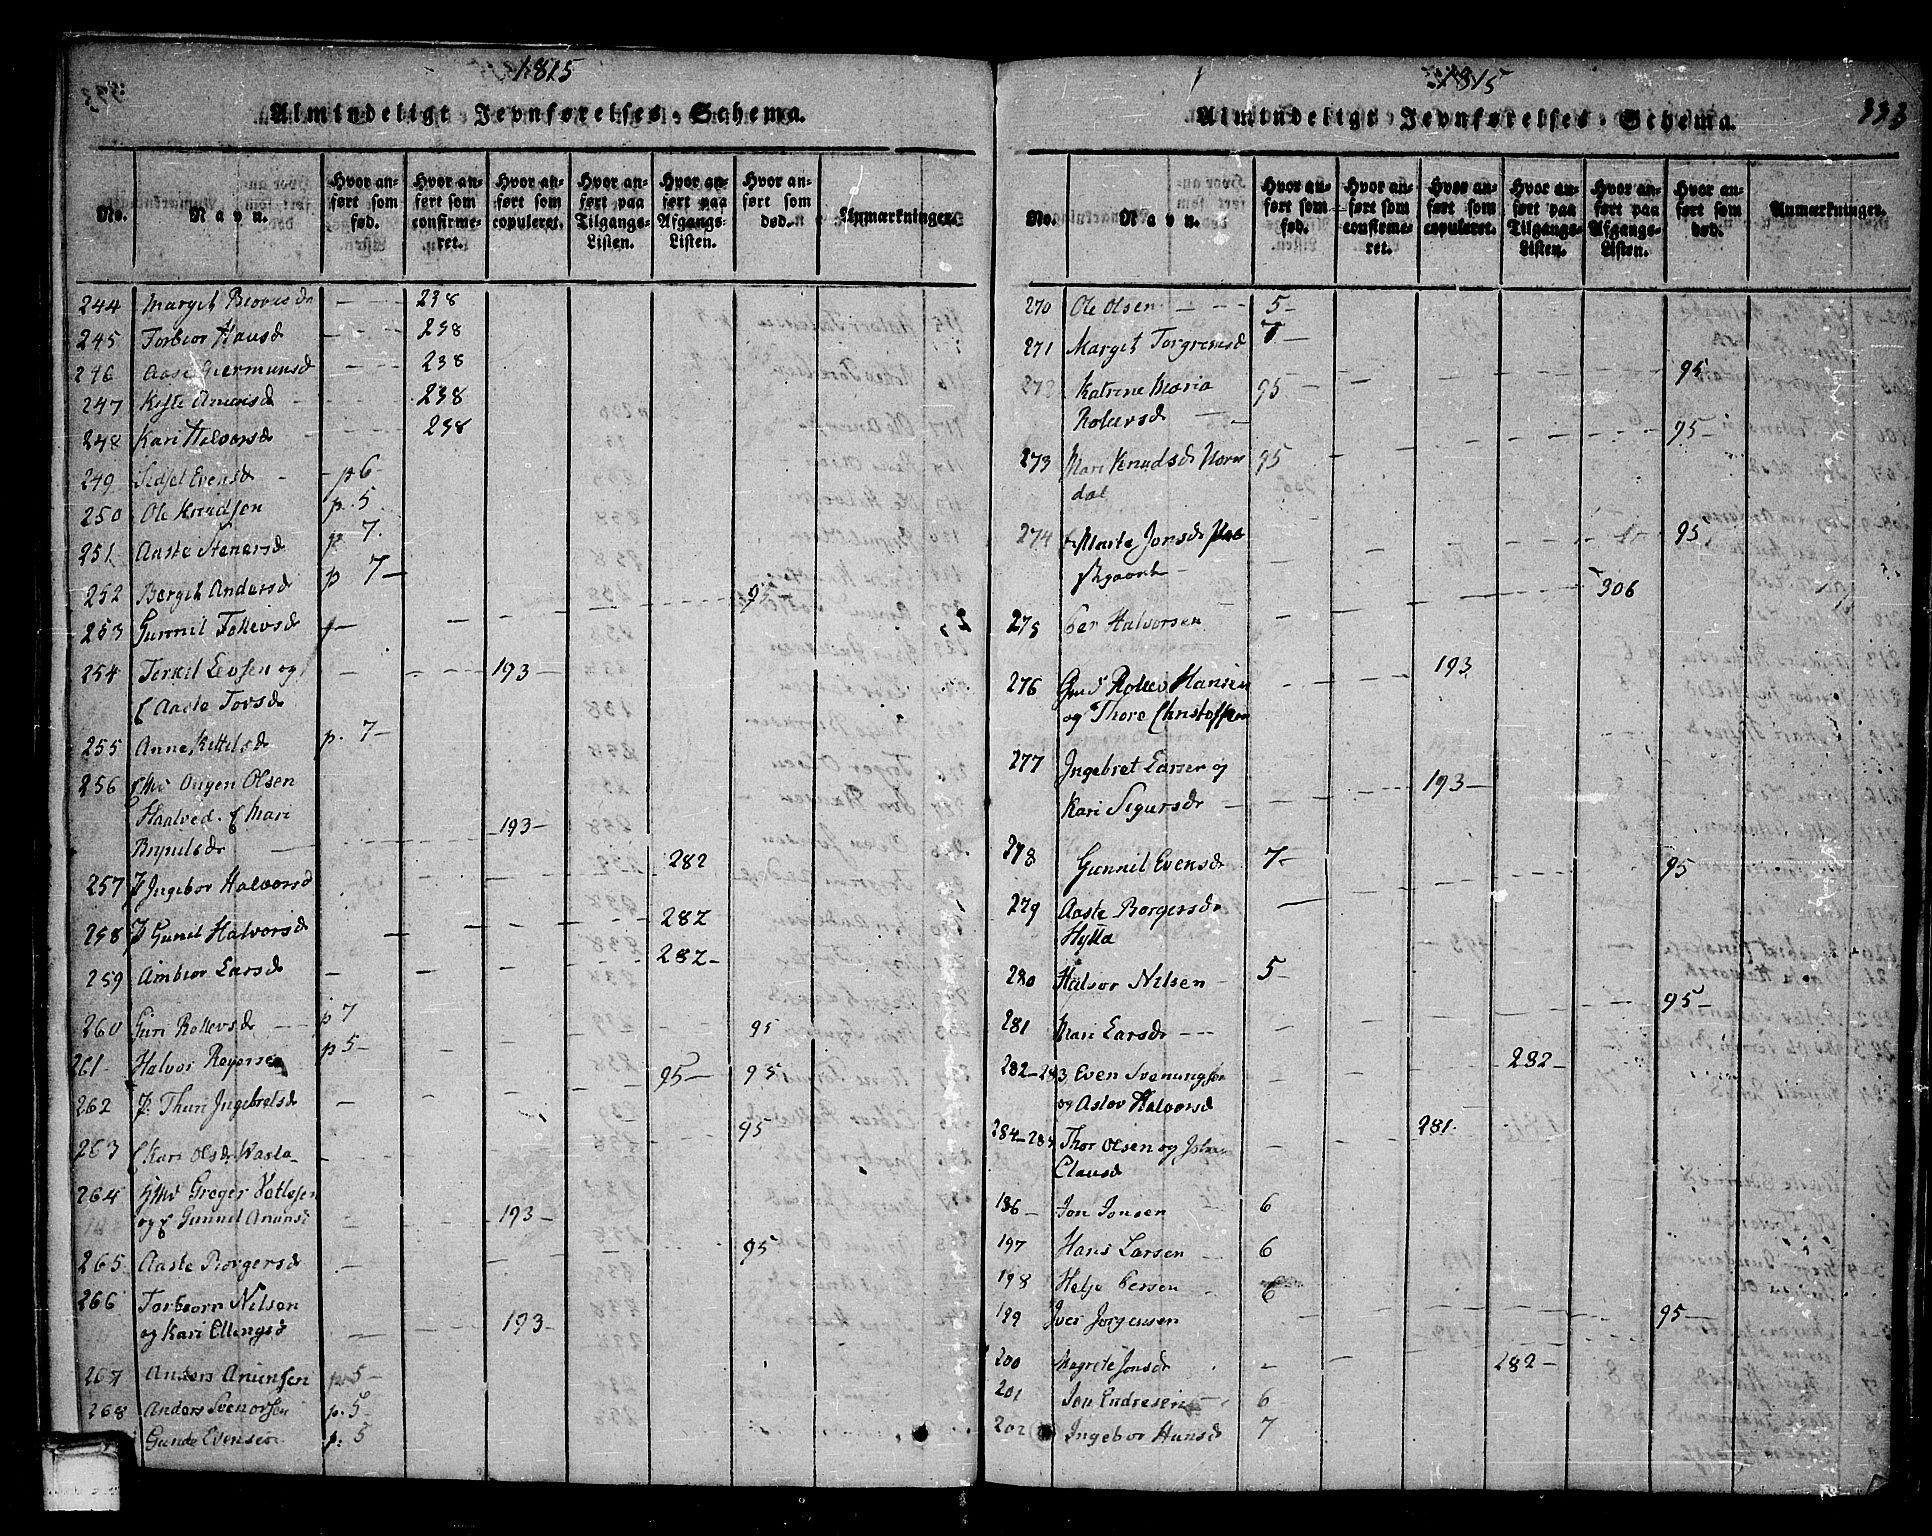 1815
Almindeligt Jevnførelses-Schema.
No.
Navn.
Hvor anført som fød.
Hvor anført som confirmeret.
Hvor anført som copuleret.
Hvor anført paa Tilgangs-Listen.
Hvor anført paa Afgangs-Listen.
Hvor anført som død.
Anmærkninger.
244 Margit Biovsd 238
245 Torbior Hansd 238
246 Aase Giermunsd 238
247 Kiste Anunsd 238
248 Kari Halvorsd 238
249 Sidsel Evensd p 6
250 Ole Knudsen p. 5
251 Aaste Stenersd p 7.
252 Bergit Andersd p 7
253 Gunnil Follevsd 95
254 Terkil Levsen og 193
Aaste Torsd
255 Anne Kittilsd p. 7
256 Ougen Olsen
Haatved. Mari 193
Brynilsd
257 Ingebor Halvorsd 282
258 Gunil Halvorsd 282
259 Ambior Larsd 282
260 Guri Rollevsd p 7
261 Halvor Reyersen p 5 95
262 Thuri Ingebretsd 95 95
263 Kari Olsd Wasla 95
264 Greger Vetlesen
og Gunnil Anunsd 193
265 Aaste Borgersd 95
266 Torbiorn Nilsen
og Kari Ellengsd 193
267 Anders Anunsen p 5
268 Anders Svenorsen p. 5
Gunde Evensen p. 5
1815
333
Almindeligt Jevnførelses-Schema.
No.
Navn.
Hvor anført som fød.
Hvor anført som confirmeret.
Hvor anført som copuleret.
Hvor anført paa Tilgangs-Listen.
Hvor anført paa Afgangs-Listen.
Hvor anført som død.
Anmærkninger.
270 Ole Olsen 5
271 Margit Torgrimsd 7
272 Katrine Maria 95 95
Rollevsd
273 Mari Knudsd Norn 95 95
dal
274 Marte Jonsd 95
275 Per Halvorsen 306
276 Rollev Hansen 193
og Thore Christoffersen
277 Ingebret Larsen og
Kari Sigursd 193
278 Gunnil Evensd 7
279 Aaste Borgersd 95
Hylla
280 Halvor Nilsen 5
281 Mari Larsd 95
282-283 Even Svenungsen 282
og Aslov Halvorsd
284-285 Thor Olsen og 281
Clausd
186 Jon Jonsen 6
197 Hans Larsen 6
198 Helje Persen 6
199 Iver Jorgensen 95
200 Magrete Jonsd 282
201 Jon Endresen 6
202 Ingebor Hansd 7